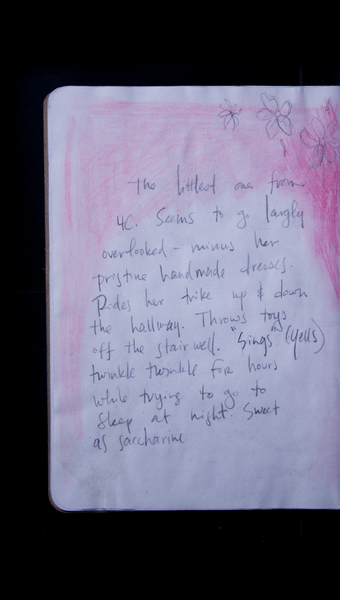 The littlest one from
4C. Seems to go largly
overlooked - minus her
pristine handmade dresses.
Rides her trike up & down
the hallway. Throws toys
off the stairwell. "Sings" (yells)
twinkle twinkle for hours
while trying to go to
sleep at night. Sweet
as saccharine